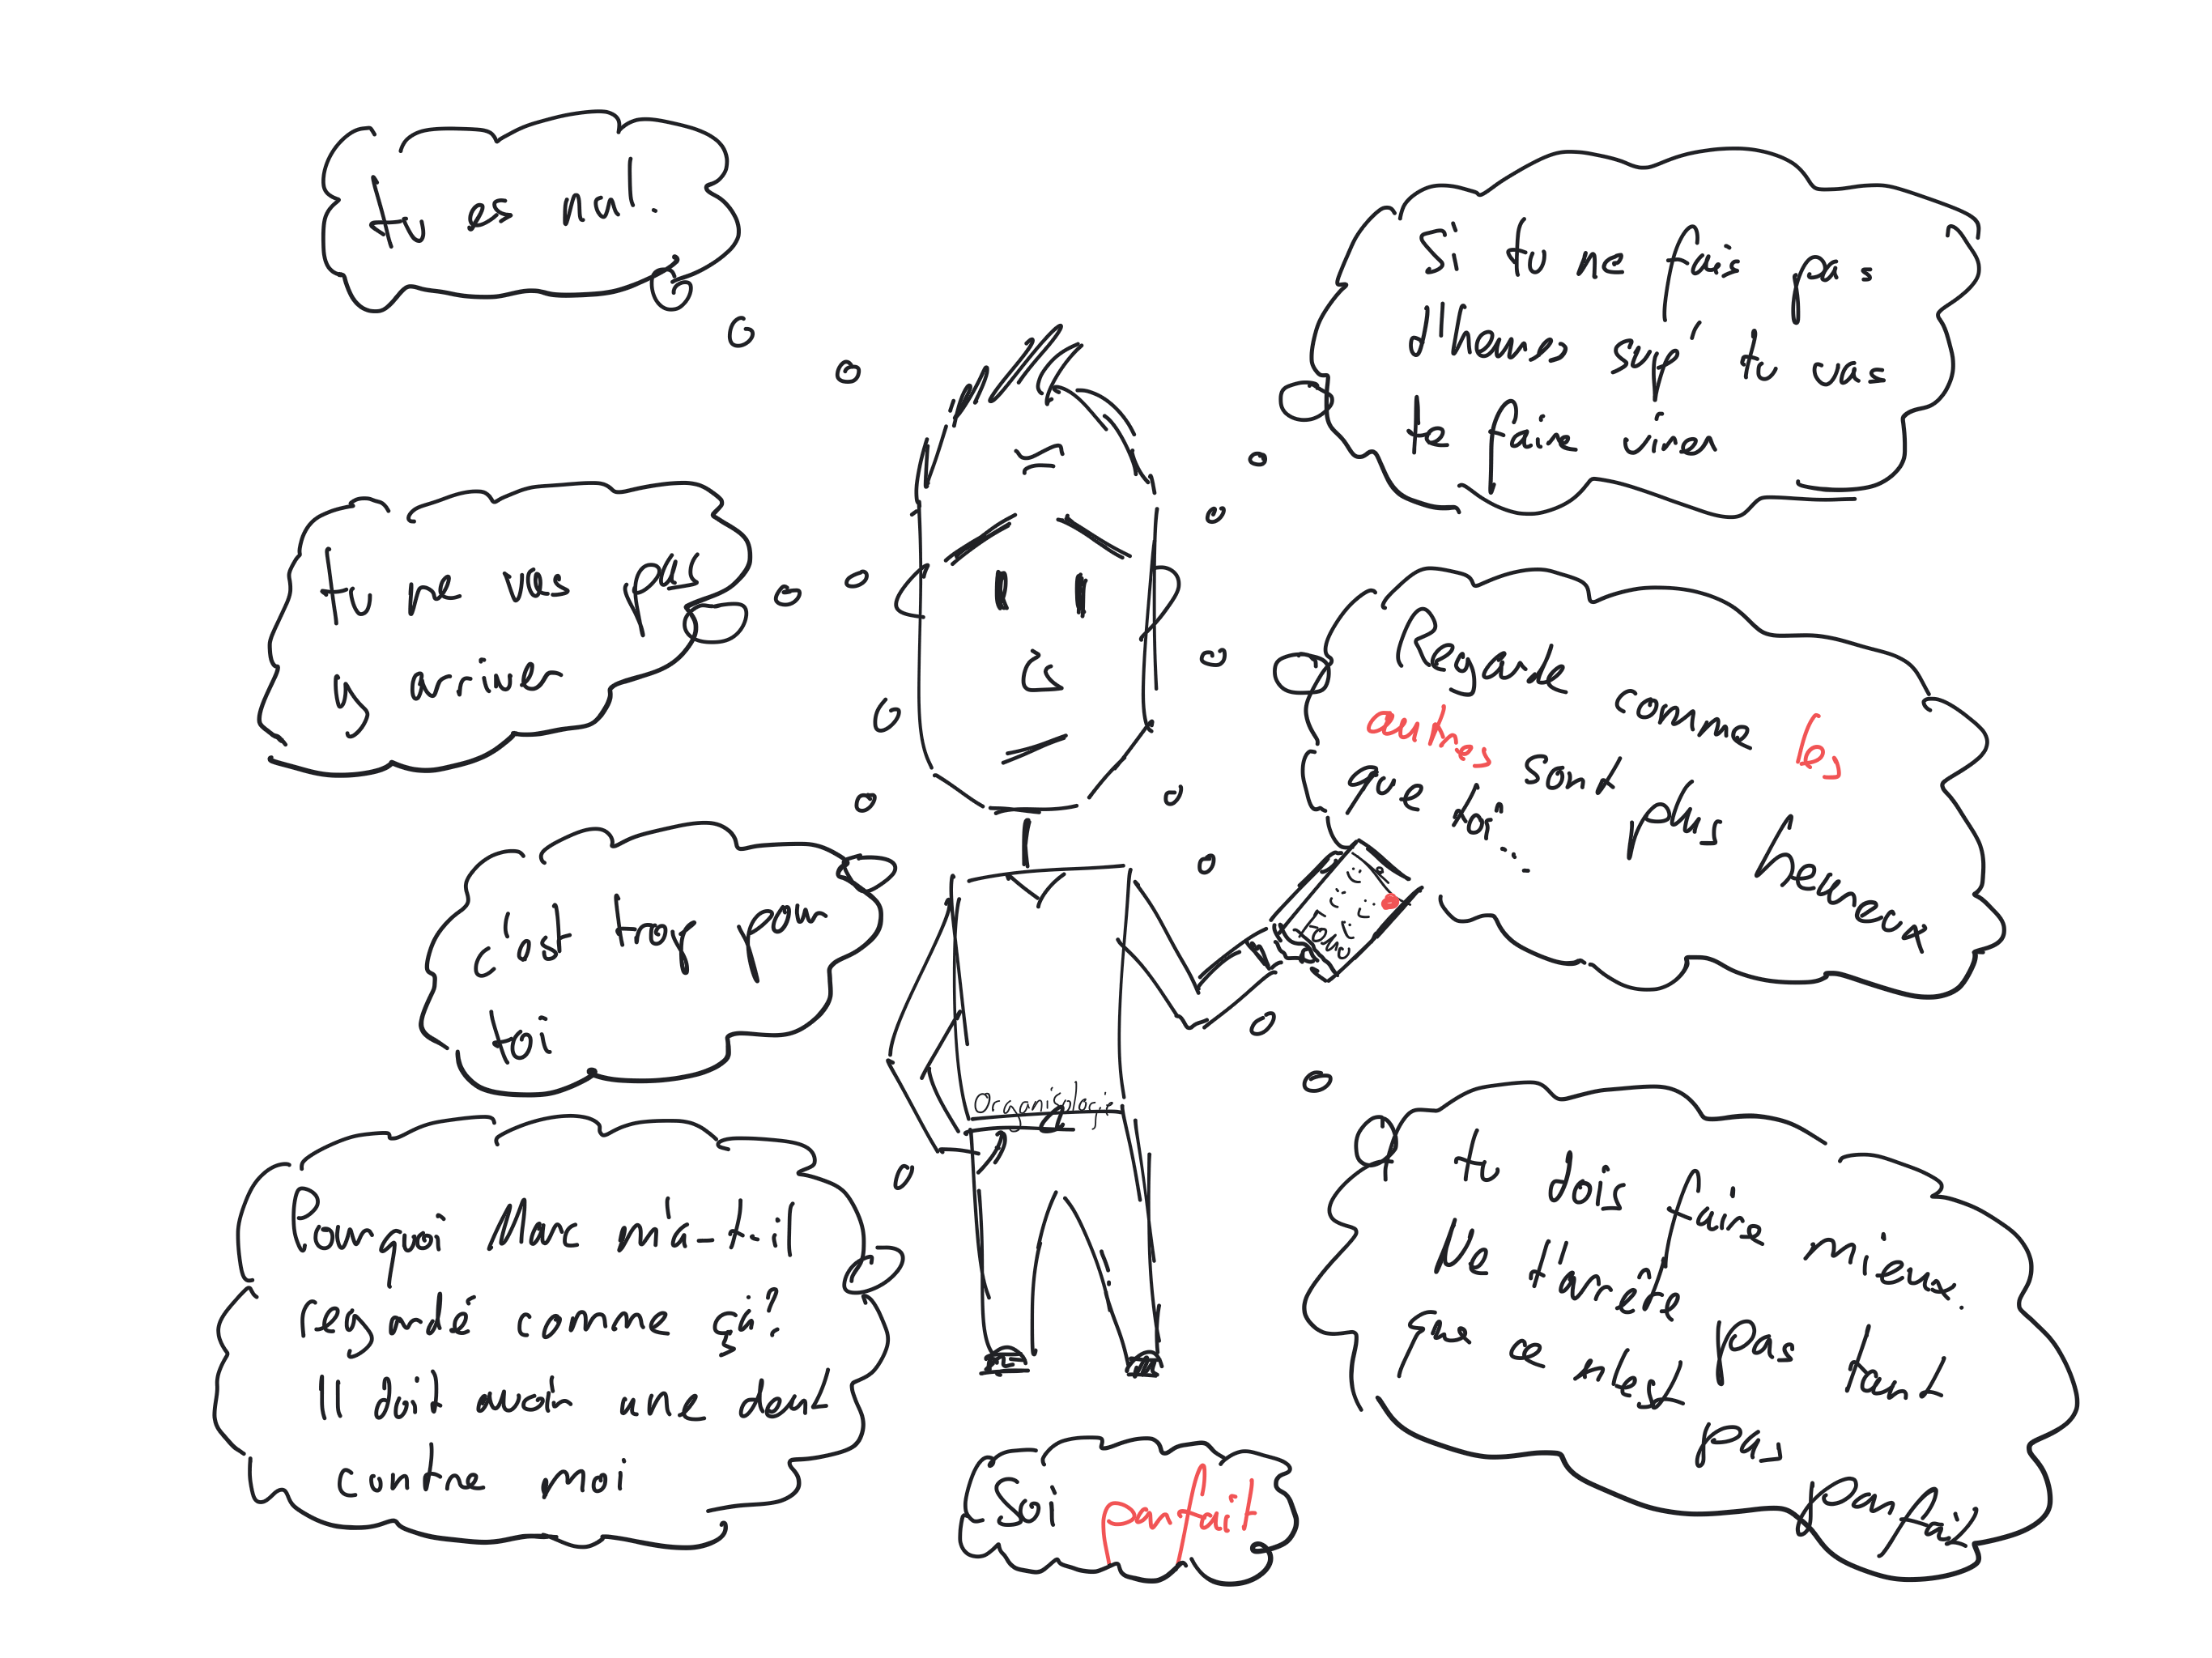 tu es nul.
Si tu ne fais pas
d'heures sup' tu vas
te faire virer
tu ne vas pas
y arriver
Regarde comme les
autres sont plus heureux
que toi...
c'est trop pour
toi
Organisologie
Pourquoi Marc m'a-t-il
regardé comme ça?
Il doit avoir une dent
contre moi
tu dois faire mieux.
Ne t'arrête pas tant
que ce n'est pas
parfait
Soi parfait